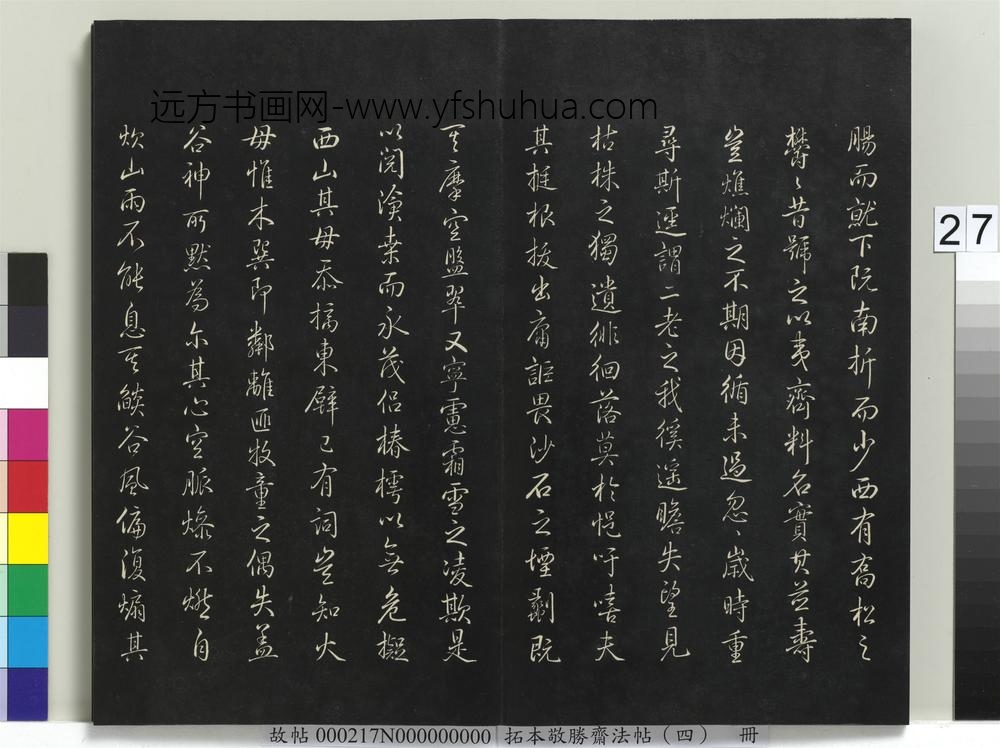 远方书画网-www.yfshuhua.com
腸而就下阮南折而少西有喬松之
欝〻昔號之以夷齊料名實其並壽
豈燋爛之不期因循未過忽〻歲時重
尋斯逕謂二老之我徯遥瞻失望見
枯株之獨遺徘徊落莫於悒吁嘻夫
其挺根拔出庸詎畏沙石之堙劃既
其摩空盬翠又寧慮霜雪之凌欺是
以閲滄桑而永茂侣椿樗以無危擬
西山其毋忝擒東壁已有詞豈知火
毋惟木巽即鄰離匪牧童之偶失盖
谷神所默為尔其心空脈燥不燃自
炊山雨不能息其燄谷風偏復煽其
27
故帖 000217N000000000 拓本敬勝齋法帖（四） 冊